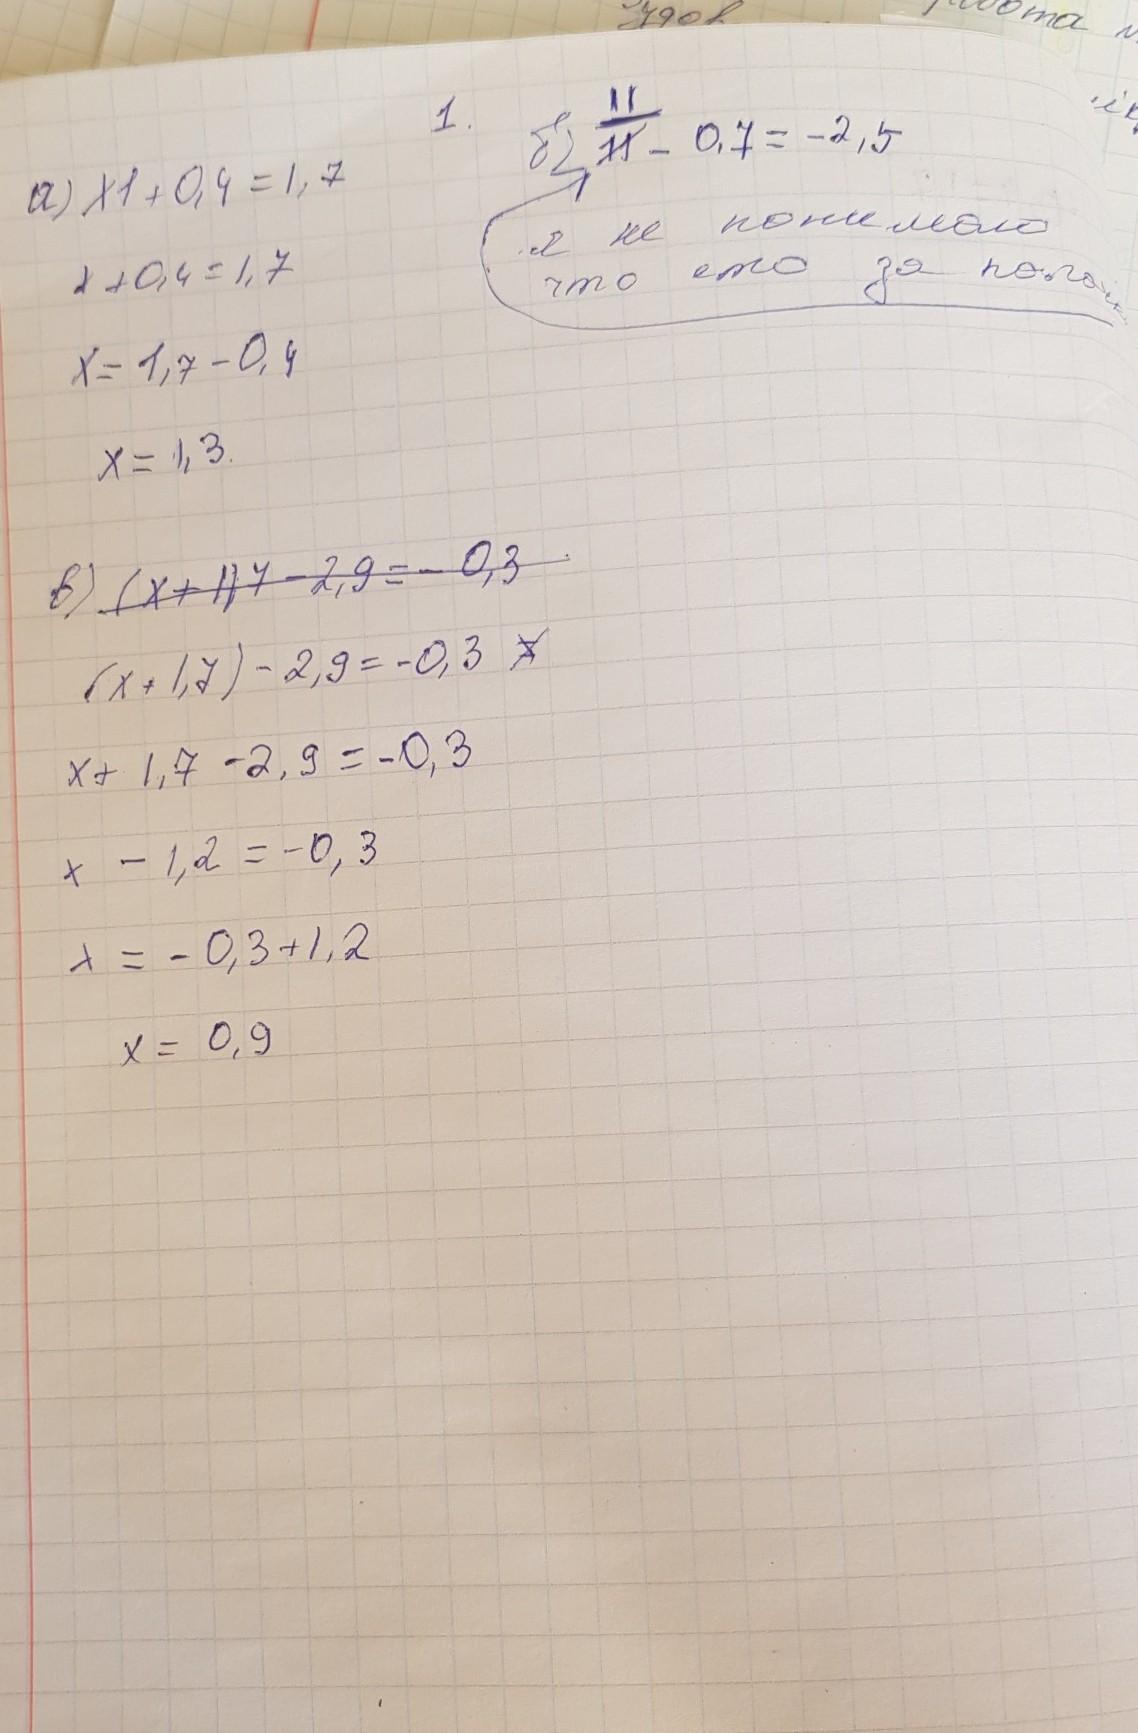 1.
а) x1+0,4=1,7
x+0,4=1,7
x=1,7-0,4
x=1,3.
б) 11 - 0,7=-2,5
я не понимаю
что ето за
в) (x+1,7-2,9=-0,3
(x+1,7)-2,9=-0,3
x+1,7-2,9=-0,3
x-1,2=-0,3
x=-0,3+1,2
x=0,9